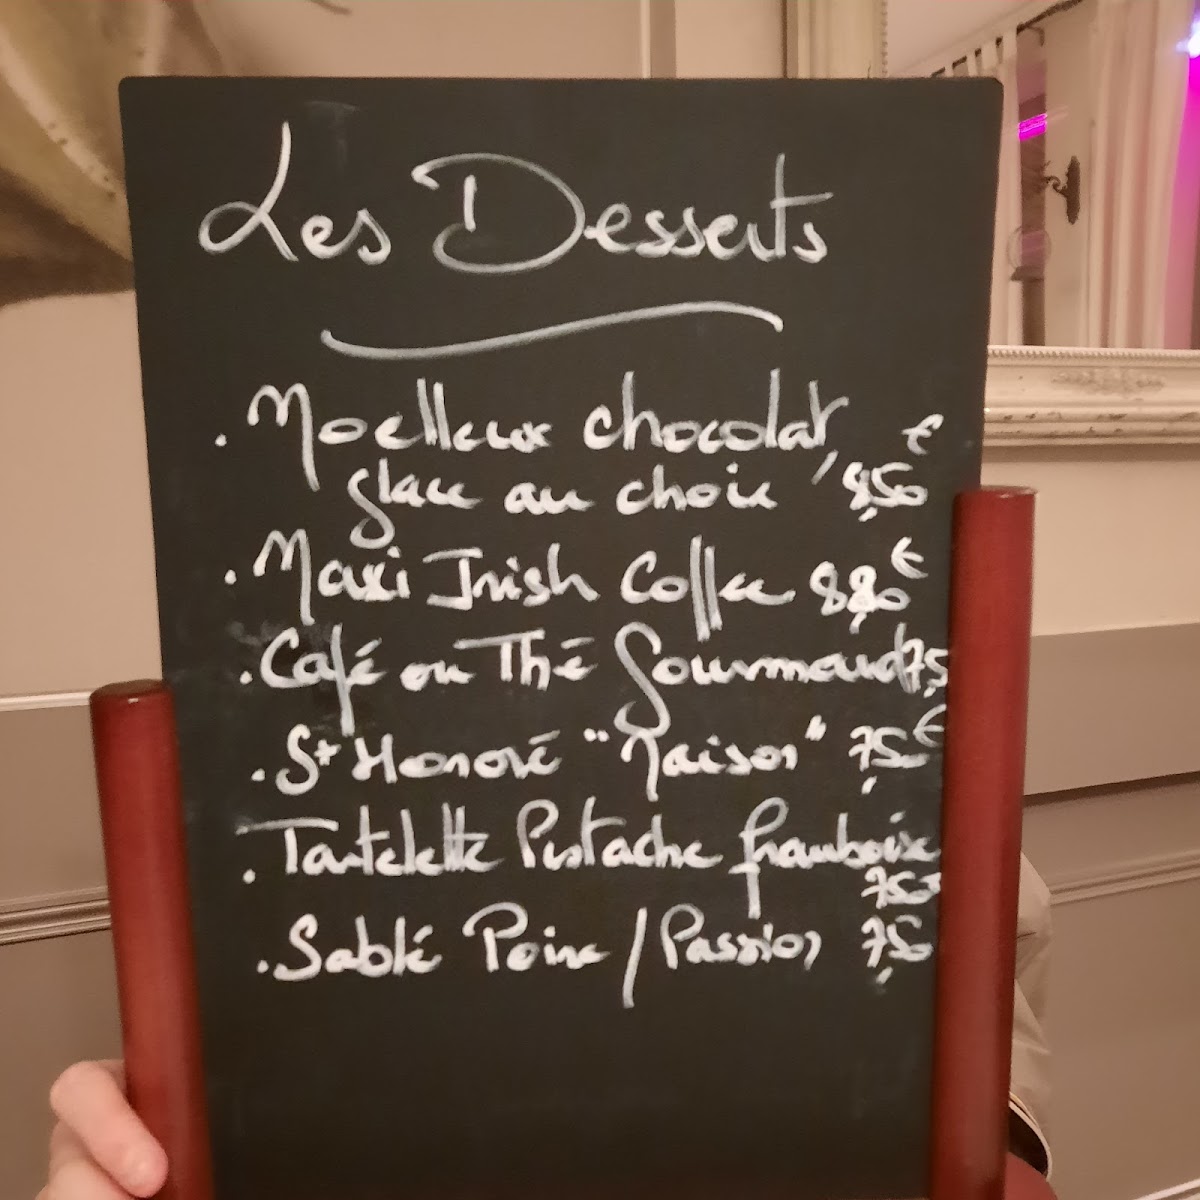 Les Desserts
. Moelleux chocolat, €
glace au choix 8,50
. Maxi Irish Coffee 8,80 €
. Café ou Thé Gourmand 7,5
. St Honoré "Maison" 7,50 €
. Tartelette Pistache framboise
7,50
. Sablé Poire / Passion 7,50